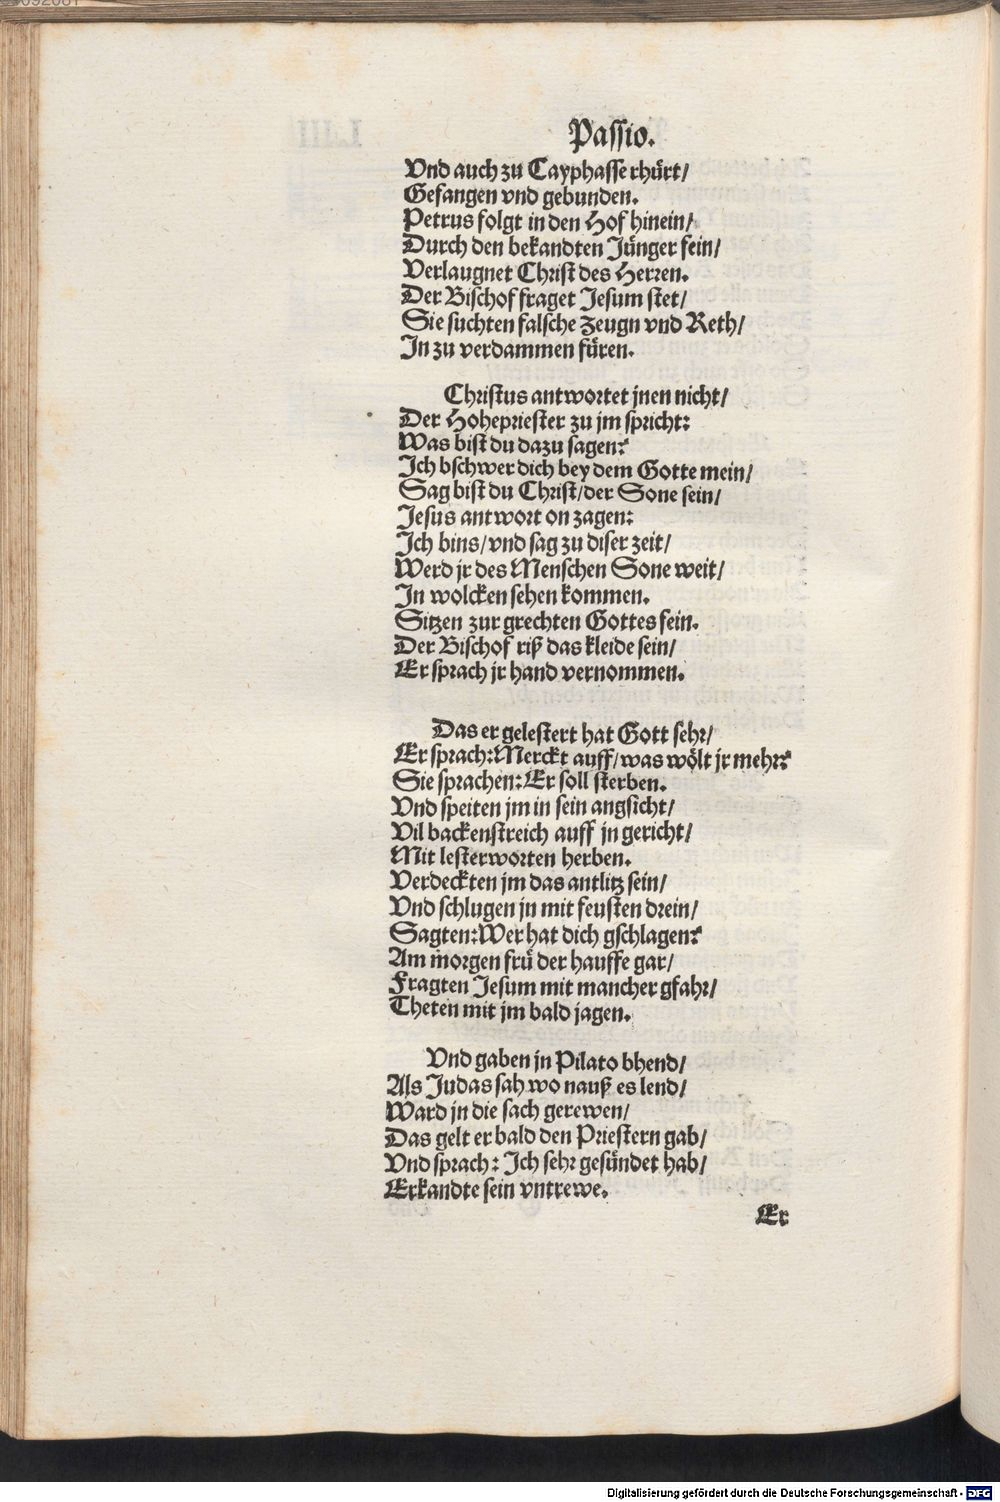 Passio.
Vnd auch zu Cayphasse rhürt/
Gefangen vnd gebunden.
Petrus folgt in den Hof hinein/
Durch den bekandten Jünger fein/
Verlaugnet Christ des Herren.
Der Bischof fraget Jesum stet/
Sie suchten falsche zeugn vnd Reth/
In zu verdammen füren.
Christus antwortet jnen nicht/
Der Hohepriester zu jm spricht:
Was bist du dazu sagen?
Ich bschwer dich bey dem Gotte mein/
Sag bist du Christ/der Sone sein/
Jesus antwort on zagen:
Ich bins/vnd sag zu diser zeit/
Werd jr des Menschen Sone weit/
In wolcken sehen kommen.
Sitzen zur grechten Gottes fein.
Der Bischof riß das kleide sein/
Er sprach jr hand vernommen.
Das er gelestert hat Gott sehr/
Er sprach:Merckt auff/was wölt jr mehr?
Sie sprachen:Er soll sterben.
Vnd speiten jm in sein angsicht/
Vil backenstreich auff jn gericht/
Mit lesterworten herben.
Verdeckten jm das antlitz sein/
Vnd schlugen jn mit feusten drein/
Sagten:Wer hat dich gschlagen?
Am morgen frü der hauffe gar/
Fragten Jesum mit mancher gfahr/
Theten mit jm bald jagen.
Vnd gaben jn Pilato bhend/
Als Judas sah wo nauß es lend/
Ward jn die sach gerewen/
Das gelt er bald den Priestern gab/
Vnd sprach: Ich sehr gesündet hab/
Erkandte sein vntrewe.
Er
Digitalisierung gefördert durch die Deutsche Forschungsgemeinschaft - DFG